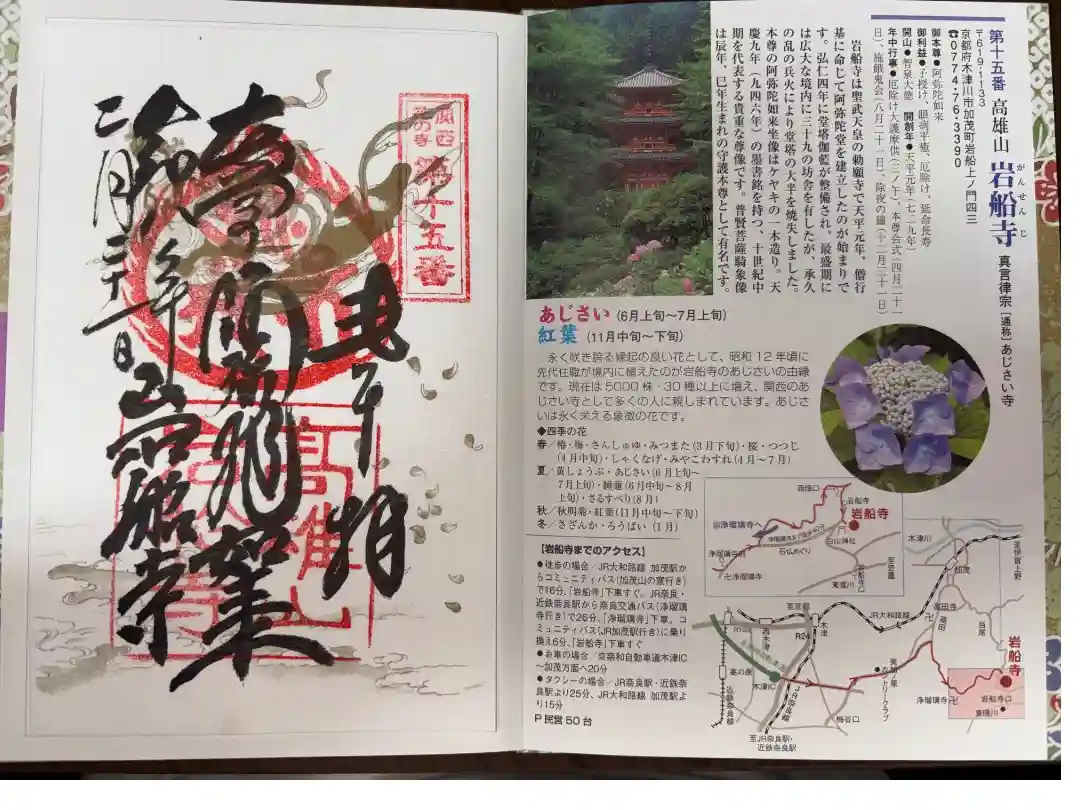 第十五番 高雄山 岩船寺 真言律宗〔通称〕あじさい寺
がんせんじ
〒619-1133
京都府木津川市加茂町岩船上ノ門四三
☎0774-76-3390
御本尊●阿弥陀如来
御利益●子授け、眼病平癒、厄除け、延命長寿
開山●智泉大徳 開創年●天平元年(七二九年)
岩船寺は聖武天皇の勅願寺で天平元年、僧行
基に命じて阿弥陀堂を建立したのが始まりで
す。弘仁四年に堂塔伽藍が整備され、最盛期に
は広大な境内に三十九の坊舎を有したが、承久
の乱の兵火により堂塔の大半を焼失しました。
本尊の阿弥陀如来坐像はケヤキの一木造り。天
慶九年(九四六年)の墨書銘を持つ、十世紀中
期を代表する貴重な尊像です。普賢菩薩騎象像
は辰年、巳年生まれの守護本尊として有名です。
あじさい(6月上旬〜7月上旬)
紅葉(11月中旬〜下旬)
永く咲き誇る縁起の良い花として、昭和12年頃に
先代住職が境内に植えたのが岩船寺のあじさいの由縁
です。現在は5000株・30種以上に増え、関西のあ
じさい寺として多くの人に親しまれています。あじさ
いは永く栄える象徴の花です。
◆四季の花
春/椿・梅・さんしゅゆ・みつまた(3月下旬)・桜・つつじ
(4月中旬)・しゃくなげ・みやこわすれ(4月〜7月)
夏/黄しょうぶ・あじさい(6月上旬〜
7月上旬)・睡蓮(6月中旬〜8月
上旬)・さるすべり(8月)
秋/秋明菊・紅葉(11月中旬〜下旬)
冬/さざんか・ろうばい(1月)
【岩船寺までのアクセス】
●徒歩の場合/JR大和路線 加茂駅か
らコミュニティバス(加茂山の家行き)
で16分、「岩船寺」下車すぐ。JR奈良・
近鉄奈良駅から奈良交通バス(浄瑠璃
寺行き)で26分、「浄瑠璃寺」下車。コ
ミュニティバス(JR加茂駅行き)に乗り
換え6分、「岩船寺」下車すぐ
●お車の場合/京奈和自動車道木津IC
〜加茂方面へ20分
●タクシーの場合/JR奈良駅・近鉄奈
良駅より25分、JR大和路線 加茂駅よ
り15分
P 民営50台
岩船寺
浄瑠璃寺へ
石仏めぐり
白山神社
岩船寺
卍浄瑠璃寺
東鳴川
木津川
加茂
至伊賀上野
至京都
JR大和路線
高田寺
高田
当尾
西木津
木津
R24
高の原
木津IC
近鉄奈良線
JR奈良線
梅谷口
カントリークラブ
浄瑠璃寺卍
岩船寺口
東鳴川
岩船寺
至JR奈良駅・
近鉄奈良駅
第十五番
奉拝
高雄山
岩船寺